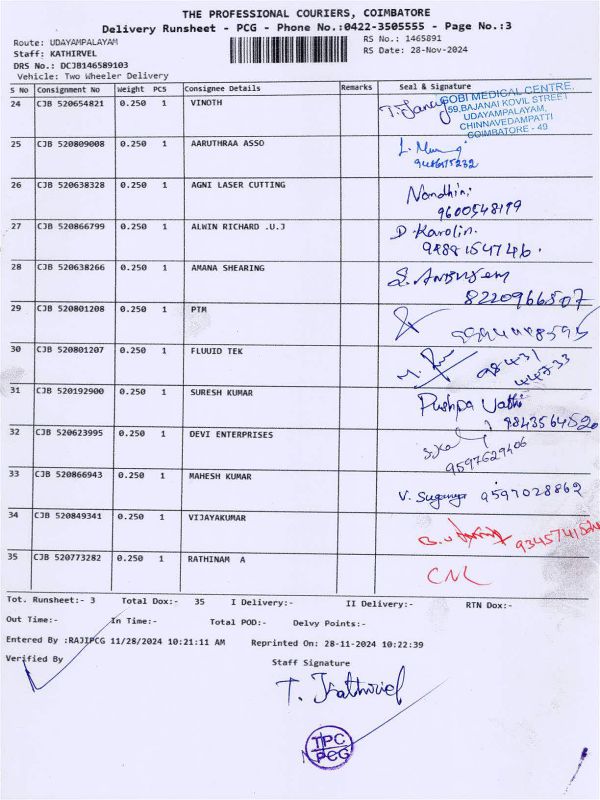 THE PROFESSIONAL COURIERS, COIMBATORE
Delivery Runsheet - PCG - Phone No.:0422-3505555 - Page No.:3
Route: UDAYAMPALAYAM RS No.: 1465891
Staff: KATHIRVEL RS Date: 28-Nov-2024
DRS No.: DCJB146589103
Vehicle: Two Wheeler Delivery
S No Consignment No Weight PCS Consignee Details Remarks Seal & Signature
24 CJB 520654821 0.250 1 VINOTH
GOBI MEDICAL CENTRE,
59,BAJANAI KOVIL STREET
UDAYAMPALAYAM,
CHINNAVEDAMPATTI
COIMBATORE - 49
25 CJB 520809008 0.250 1 AARUTHRAA ASSO
26 CJB 520638328 0.250 1 AGNI LASER CUTTING Nandhini
9600548199
27 CJB 520866799 0.250 1 ALWIN RICHARD .U.J D. Karolin.
9888154746.
28 CJB 520638266 0.250 1 AMANA SHEARING
8220966507
29 CJB 520801208 0.250 1 PTM
30 CJB 520801207 0.250 1 FLUUID TEK 98431
44733
31 CJB 520192900 0.250 1 SURESH KUMAR Pushpa Vathi
9843564520
32 CJB 520623995 0.250 1 DEVI ENTERPRISES
9597629406
33 CJB 520866943 0.250 1 MAHESH KUMAR V. Suganya 9597028862
34 CJB 520849341 0.250 1 VIJAYAKUMAR
35 CJB 520773282 0.250 1 RATHINAM A CNL
Tot. Runsheet:- 3 Total Dox:- 35 I Delivery:- II Delivery:- RTN Dox:-
Out Time:- In Time:- Total POD:- Delvy Points:-
Entered By :RAJIPCG 11/28/2024 10:21:11 AM Reprinted On: 28-11-2024 10:22:39
Verified By Staff Signature
T. Kathirvel
TPC
PCG